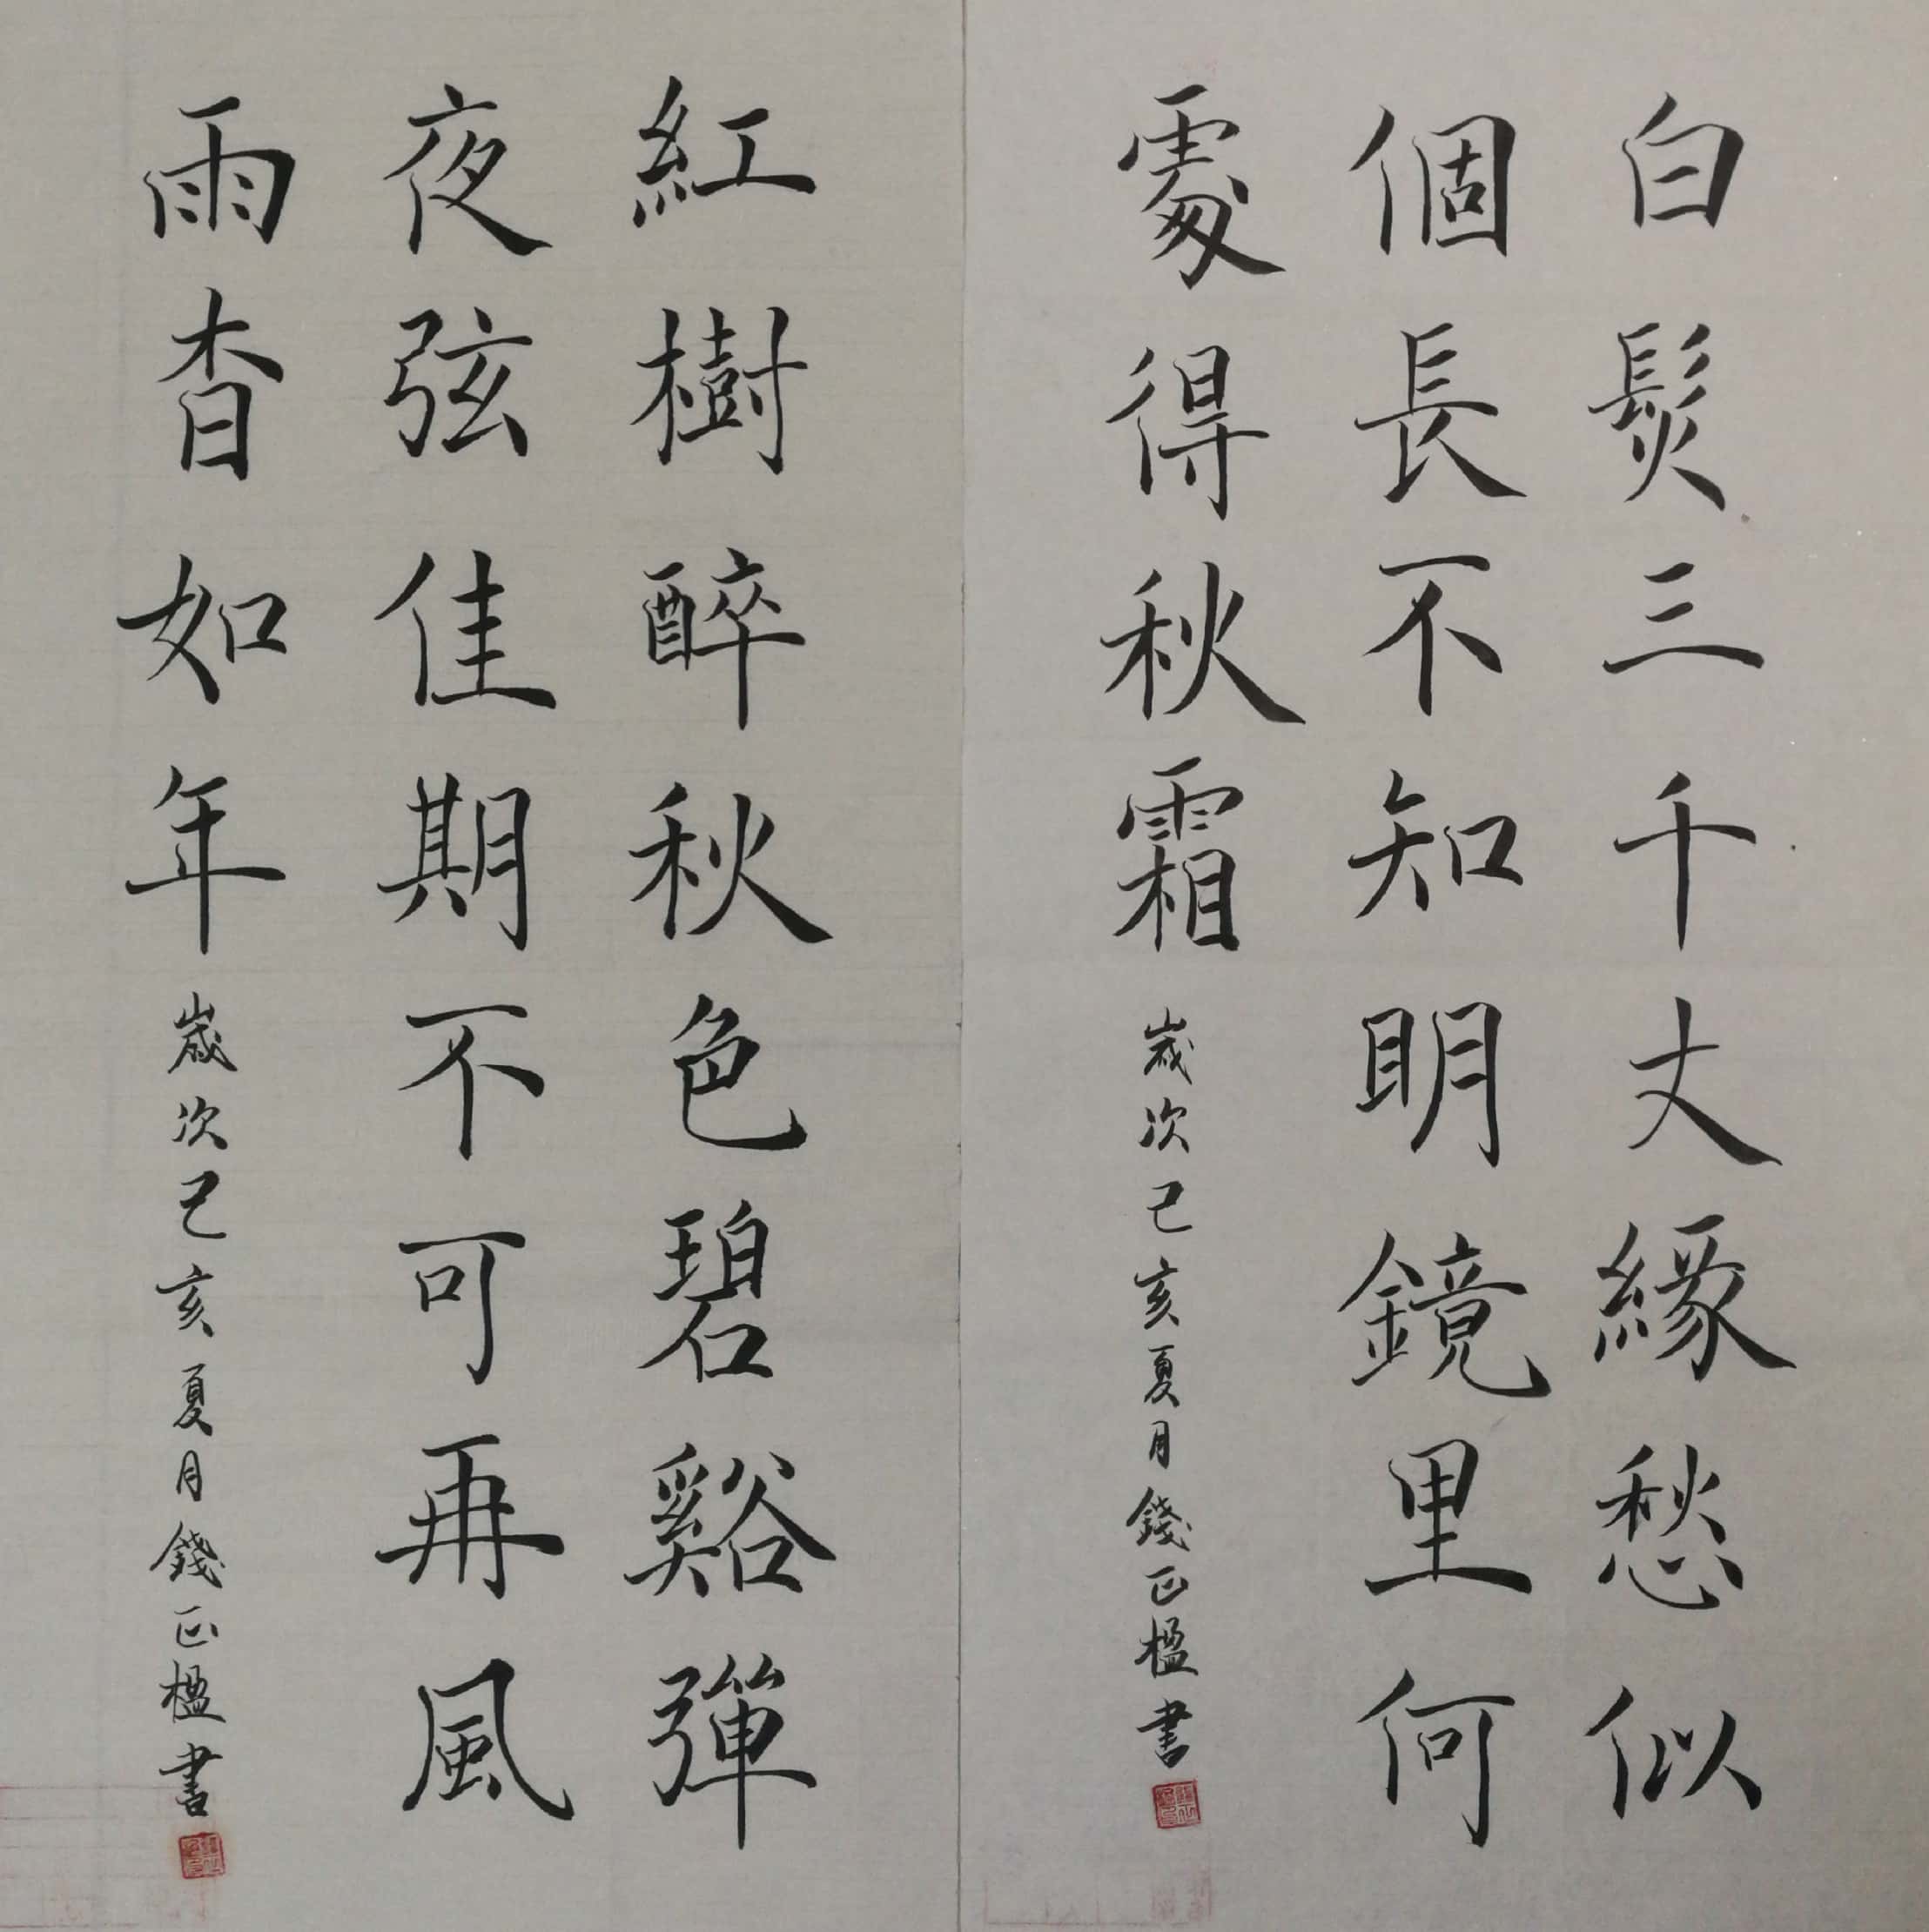 白髮三千丈緣愁似
個長不知明鏡里何
處得秋霜 歲次己亥夏月錢正楹書
紅樹醉秋色碧谿彈
夜弦佳期不可再風
雨杳如年 歲次己亥夏月錢正楹書